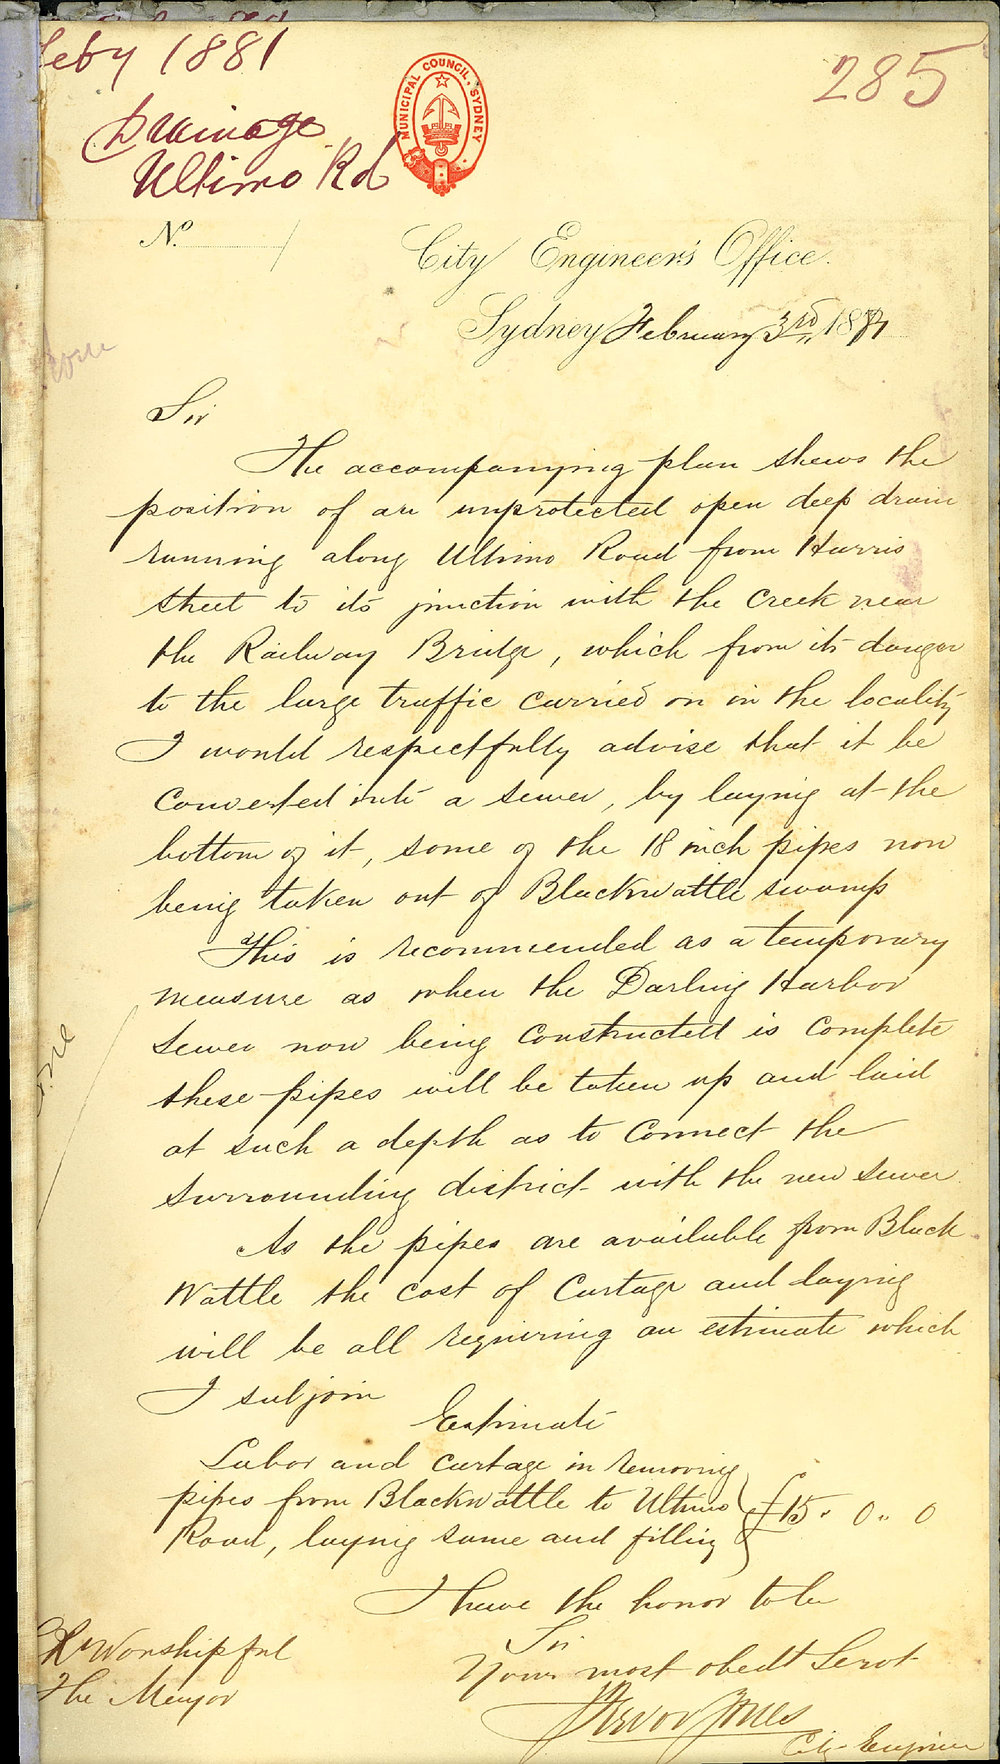 Feby 1881
285
Drainage
Ultimo Rd
MUNICIPAL COUNCIL. SYDNEY
No.
City Engineer's Office.
Sydney February 3rd, 1881
Sir
The accompanying plan shews the
position of an unprotected open deep drain
running along Ultimo Road from Harris
Street to its junction with the Creek near
the Railway Bridge, which from its danger
to the large traffic carried on in the locality
I would respectfully advise that it be
Converted into a sewer, by laying at the
bottom of it, some of the 18 inch pipes now
being taken out of Blackwattle swamp
This is recommended as a temporary
measure as when the Darling Harbor
Sewer now being Constructed is Complete
these pipes will be taken up and laid
at such a depth as to Connect the
surrounding district with the new Sewer
As the pipes are available from Black
Wattle the cost of Cartage and laying
will be all requiring an estimate which
I subjoin
Estimate
Labor and cartage in removing
pipes from Blackwattle to Ultimo
Road, laying same and filling
£15. 0.. 0
I have the honor to be
Sir
Your most obedt Servt
Trevor Jones
City Engineer
Rt Worshipful
The Mayor